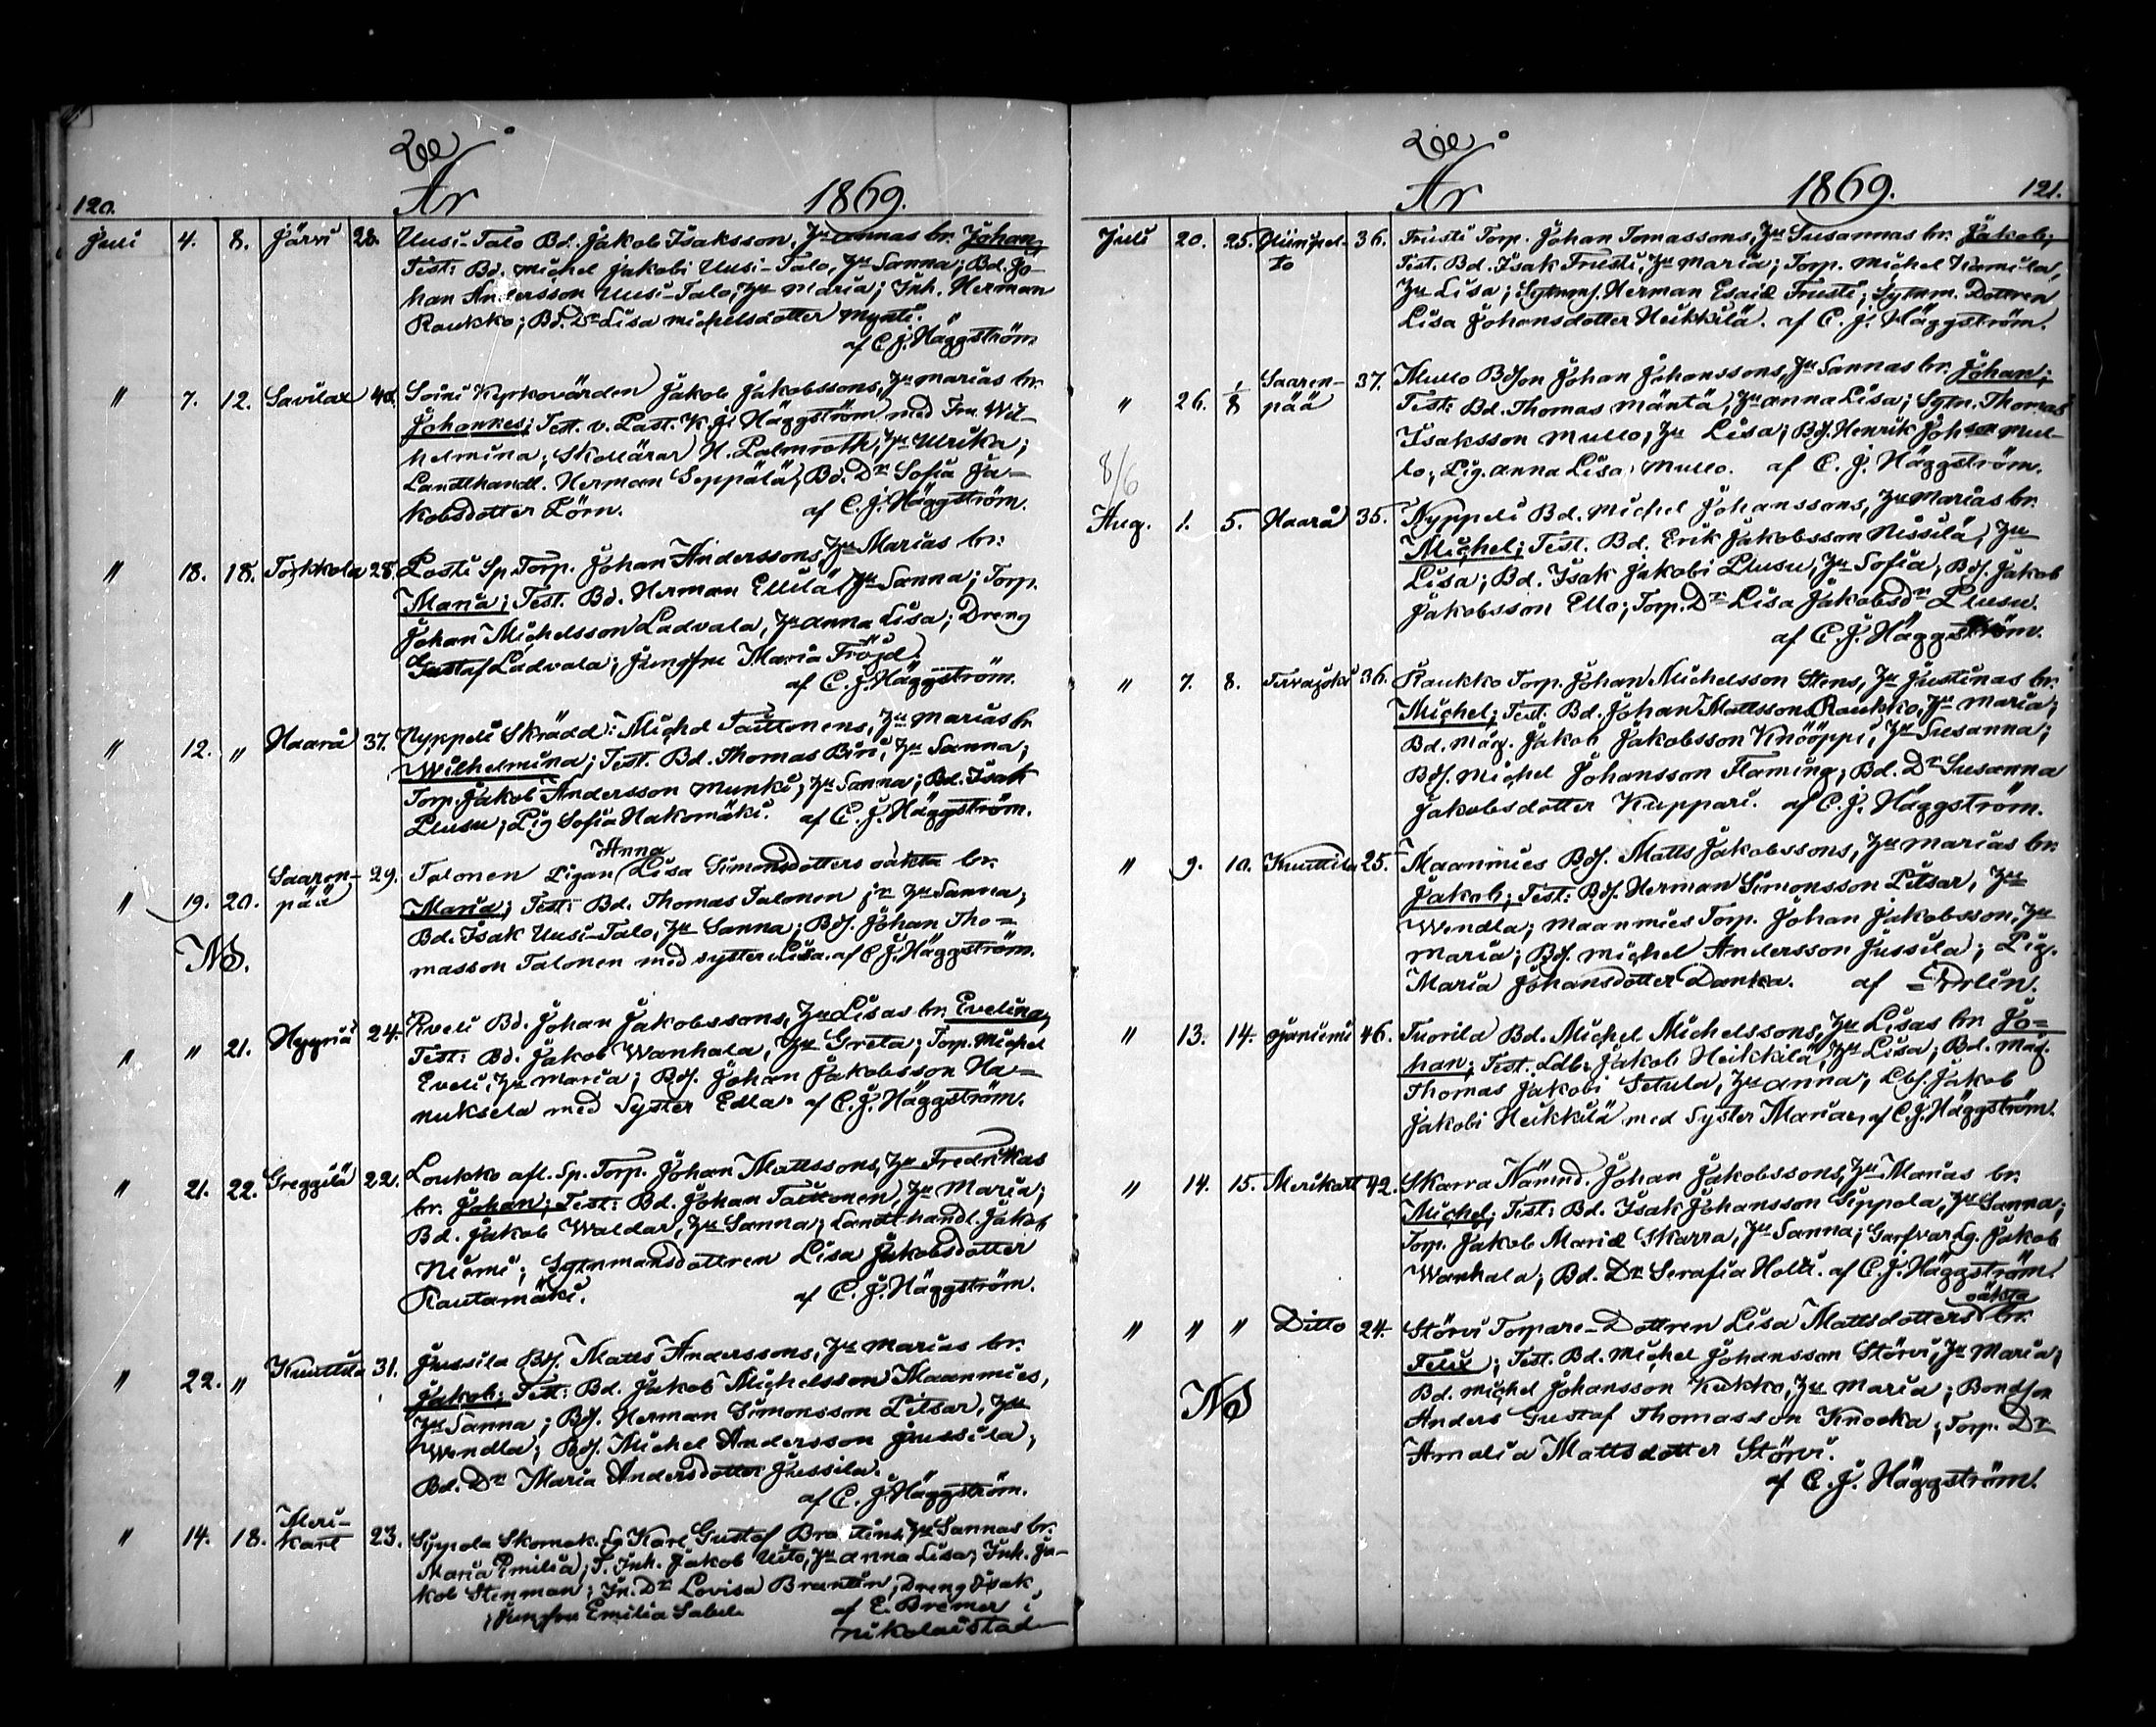 120.
År 1869.
Juli 4. 8. Järvi 28. Uusi-Talo Bd. Jakob Isaksson, Hu Annas br. Johan;
Test: Bd. Michel Jakobi Uusi-Talo, Hu Sanna; Bd. Jo-
han Andersson Uusi-Talo, Hu Maria; Inh. Herman
Raukko; Bd. Dr Lisa Michelsdotter Mynti.
af C. J. Häggström
" 7. 12. Savilax 40. Soini Kyrkovärden Jakob Jakobssons, Hu Marias br.
Johannes; Test. v. Past. K. J. Häggström med Fru Wil-
helmina; Skollärar H. Palmroth, Hu Ulrika;
Landthandl. Herman Seppälä; Bd. Dr Sofia Ja-
kobsdotter Törn. af C. J. Häggström.
" 18. 18. Torkkola 28. Posti Sp. Torp. Johan Anderssons, Hu Marias br.
Maria; Test. Bd. Herman Ellilä Hu Sanna; Torp.
Johan Michelsson Ladvala, Hu Anna Lisa; Dreng
Gustaf Ladvala; Jungfru Maria Fröjd.
af C. J. Häggström.
" 12. " Haarå 37. Nyppeli Skrädd: Michel Taittonens, Hu Marias br
Wilhelmina; Test. Bd. Thomas Biri, Hu Sanna;
Torp. Jakob Andersson Munki, Hu Sanna; Bd. Isak
Plusu, Pig Sofia Hakomäki. af C. J. Häggström.
Anna
" 19. 20. Saaren- 29. Talonen Pigan Lisa Simonsdotters oäkta br.
pää Maria; Test: Bd. Thomas Talonen jr Hu Sanna;
Bd. Isak Uusi-Talo, Hu Sanna; Bds. Johan Tho-
NB. masson Talonen med syster Lisa. af C. J. Häggström.
" " 21. Hyyriä 24. Eveli Bd. Johan Jakobssons, Hu Lisas br. Evelina;
Test: Bd. Jakob Wanhala, Hu Greta; Torp. Michel
Eveli, Hu Maria; Bds. Johan Jakobsson Ha-
nuksela med Syster Edla. af C. J. Häggström.
" 21. 22. Greggilä 22. Loukko afl. Sp. Torp. Johan Mattssons, Hu Fredrikas
br. Johan; Test: Bd. Johan Taittonen, Hu Maria;
Bd. Jakob Waldar, Hu Sanna; Landthandl. Jakob
Niemi; Sytnmansdottren Lisa Jakobsdotter
Rautamäki. af C. J. Häggström.
" 22. " Kuuttila 31. Jussila Bds. Matts Anderssons, Hu Marias br.
Jakob; Test: Bd. Jakob Michelsson Maanmies,
Hu Sanna; Bds. Herman Simonsson Pitsar, Hu
Wendla; Bds. Michel Andersson Jussila;
Bd. Dr Maria Andersdotter Jussila.
af C. J. Häggström.
" 14. 18. Meri-
kart 23. Sippola Skomak. Lg Karl Gustaf Brantins, Hu Sannas br.
Maria Emilia; T. Inh. Jakob Uito, Hu Anna Lisa; Inh. Ja-
kob Stenman; In. Dr Lovisa Brantin; Dreng Isak
; Jungfru Emilia Salula af E. Bremer i
Nikolaistad
121.
År 1869.
Juli 20. 25. Palimpel-
to 36. Truisti Torp. Johan Tomassons, Hu Susannas br. Jakob;
Test. Bd. Isak Truisti, Hu Maria; Torp. Michel Kamila,
Hu Lisa; Sytnms. Herman Esaiæ Truisti; Sytnm. Dottren
Lisa Johansdotter Heikkilä. af C. J. Häggström.
" 26. 1/8 Saaren-
pää 37. Mullo Bdson Johan Johanssons, Hu Sannas br. Johan;
Test: Bd. Thomas Mäntä, Hu Anna Lisa; Sytn. Thomas
Isaksson Mullo, Hu Lisa; Bds. Henrik Johson Mul-
lo, Pig. Anna Lisa Mullo. af C. J. Häggström.
8/6
Aug. 1. 5. Haarå 35. Nyppeli Bd. Michel Johanssons, Hu Marias br.
Michel; Test. Bd. Erik Jakobsson Nissilä, Hu
Lisa; Bd. Isak Jakobi Plusu, Hu Sofia; Bds. Jakob
Jakobsson Ello; Torp. Dr Lisa Jakobsdr Plusu.
af C. J. Häggström.
" 7. 8. Tervajoki 36. Raukko Torp. Johan Michelsson Stens, Hu Justinas br.
Michel; Test: Bd. Johan Mattssons Raukko, Hu Maria;
Bd. Måg. Jakob Jakobsson Knööppi, Hu Susanna;
Bds. Michel Johansson Flaming; Bd. Dr Susanna
Jakobsdotter Kuppari. af C. J. Häggström.
" 9. 10. Kuuttila 25. Maanmies Bds. Matts Jakobssons, Hu Marias br.
Jakob; Test: Bds. Herman Simonsson Pitsar, Hu
Wendla; Maanmies Torp. Johan Jakobsson, Hu
Maria; Bds. Michel Andersson Jussila; Pig.
Maria Johansdotter Danka. af
" 13. 14. Ojaniemi 46. Tuorila Bd. Michel Michelssons, Hu Lisas br. Jo-
han; Test. Ldb. Jakob Heikkilä, Hu Lisa; Bd. Måg.
Thomas Jakobi Setula, Hu Anna; Lbs. Jakob
Jakobi Heikkilä med Syster Maria, af C. J. Häggström.
" 14. 15. Merikart 42. Skarra Nämnd. Johan Jakobssons, Hu Marias br.
Michel; Test: Bd. Isak Johansson Sippola, Hu Sanna;
Torp. Jakob Mariæ Skarra, Hu Sanna; Garfvar Lg. Jakob
Wanhala; Bd. Dr Serafia Holti. af C. J. Häggström.
oäkta
" " " Ditto 24. Störvi Torpare-Dottren Lisa Mattsdotters br.
Felix; Test. Bd. Michel Johansson Störvi, Hu Maria;
NB Bd. Michel Johansson Kukko, Hu Maria; Bondson
Anders Gustaf Thomasson Knooka; Torp. Dr
Amalia Mattsdotter Störvi.
af C. J. Häggström.